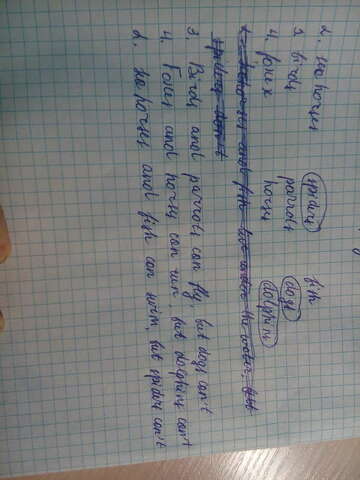 2. sea horses spiders fish
3. birds parrots dogs
4. foxex horses dolphins
2. Seahorses and fish live under the water, but
spiders don't
3. Birds and parrots can fly, but dogs can't
4. Foxes and horses can run but dolphins can't
2. Sea horses and fish can swim, but spiders can't